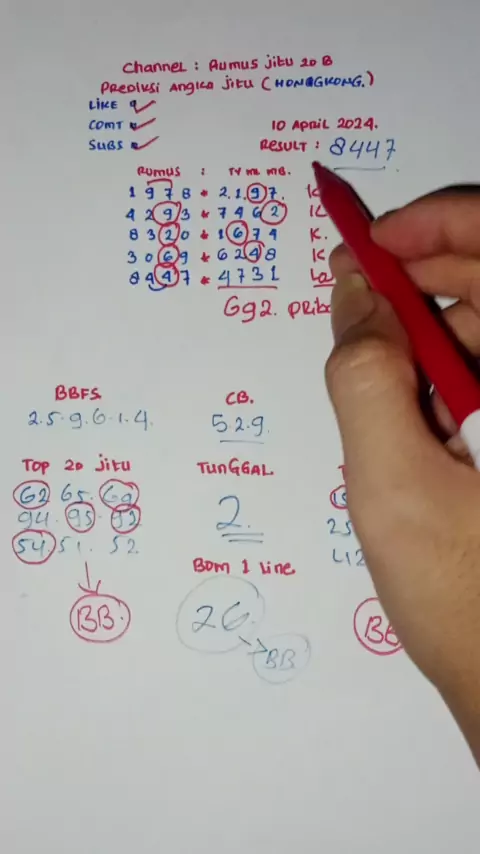 Channel : Rumus jitu 20 B
Prediksi Angka jitu (HONGKONG.)
LIKE
COMT
SUBS
10 April 2024.
RESULT : 8447
RUMUS :
1978 * 2.1.97. K
4293 * 7462
8320 * 1674 K.
3069 * 6248 K
8447 * 4731
692.
BBFS
2.5.9.6.1.4.
CB.
5.2.9.
Top 20 jitu
62 65. 69
94. 95. 92
54. 51. 52
BB.
TUNGGAL
2.
BOM 1 Line
26
BB
25